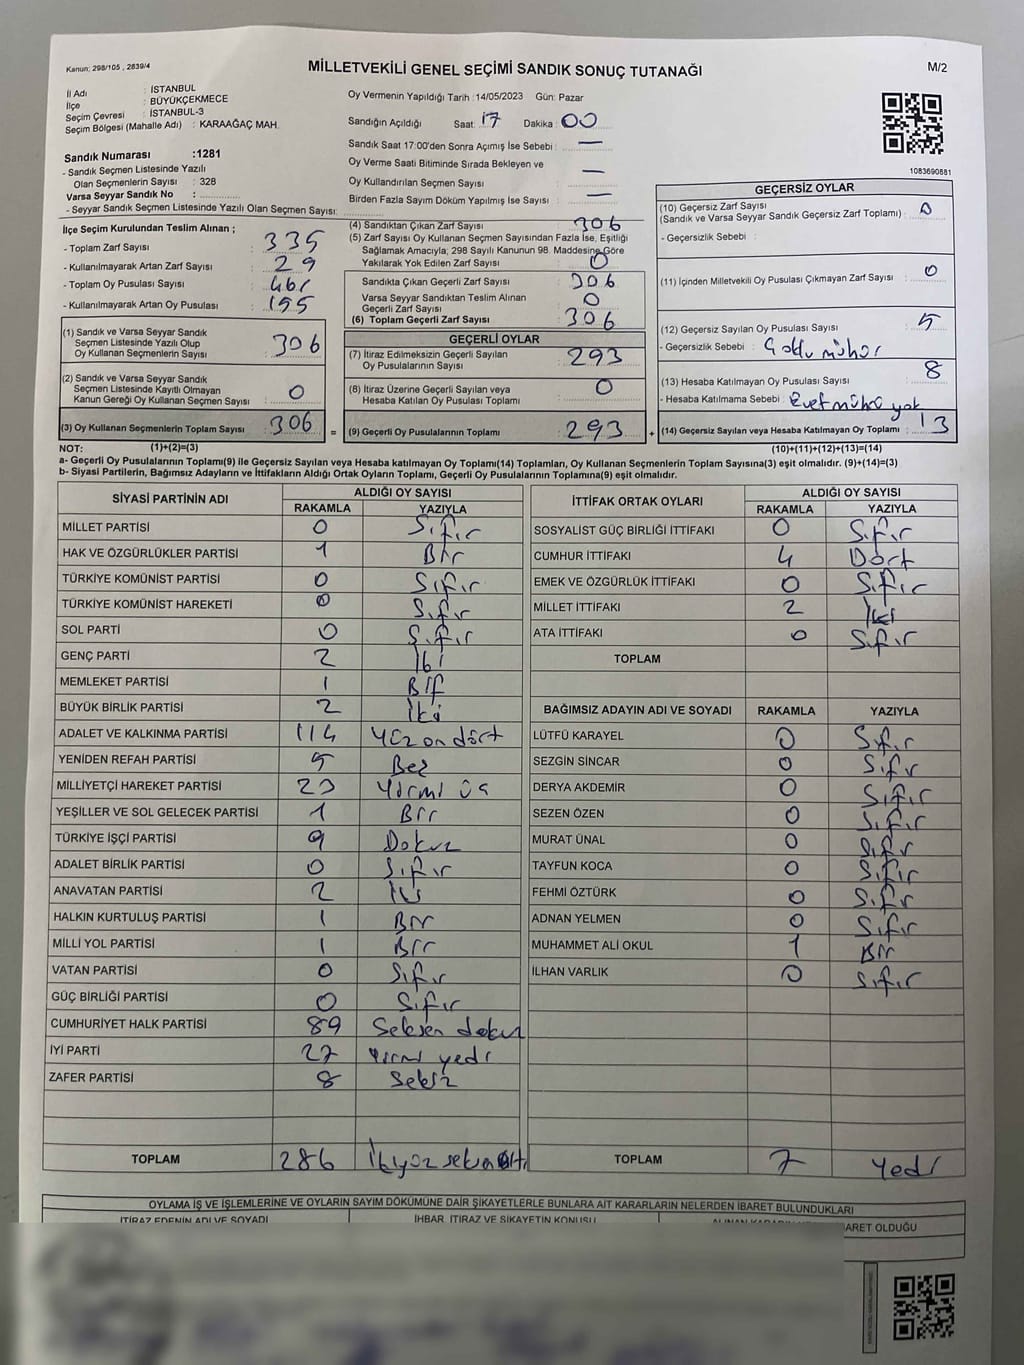 Kanun; 298/105 , 2839/4
MİLLETVEKİLİ GENEL SEÇİMİ SANDIK SONUÇ TUTANAĞI
M/2
İl Adı : İSTANBUL
İlçe : BÜYÜKÇEKMECE
Seçim Çevresi : İSTANBUL-3
Seçim Bölgesi (Mahalle Adı) : KARAAĞAÇ MAH.
Sandık Numarası :1281
- Sandık Seçmen Listesinde Yazılı
Olan Seçmenlerin Sayısı : 328
Varsa Seyyar Sandık No :
- Seyyar Sandık Seçmen Listesinde Yazılı Olan Seçmen Sayısı:
Oy Vermenin Yapıldığı Tarih :14/05/2023 Gün: Pazar
Sandığın Açıldığı Saat: 17 Dakika : 00
Sandık Saat 17:00'den Sonra Açılmış İse Sebebi : —
Oy Verme Saati Bitiminde Sırada Bekleyen ve
Oy Kullandırılan Seçmen Sayısı —
Birden Fazla Sayım Döküm Yapılmış İse Sayısı : —
1083690881
İlçe Seçim Kurulundan Teslim Alınan ;
- Toplam Zarf Sayısı : 335
- Kullanılmayarak Artan Zarf Sayısı : 29
- Toplam Oy Pusulası Sayısı : 461
- Kullanılmayarak Artan Oy Pusulası : 155
(1) Sandık ve Varsa Seyyar Sandık
Seçmen Listesinde Yazılı Olup
Oy Kullanan Seçmenlerin Sayısı : 306
(2) Sandık ve Varsa Seyyar Sandık
Seçmen Listesinde Kayıtlı Olmayan
Kanun Gereği Oy Kullanan Seçmen Sayısı : 0
(3) Oy Kullanan Seçmenlerin Toplam Sayısı : 306 =
(4) Sandıktan Çıkan Zarf Sayısı : 306
(5) Zarf Sayısı Oy Kullanan Seçmen Sayısından Fazla İse, Eşitliği
Sağlamak Amacıyla; 298 Sayılı Kanunun 98. Maddesine Göre
Yakılarak Yok Edilen Zarf Sayısı : 0
Sandıkta Çıkan Geçerli Zarf Sayısı : 306
Varsa Seyyar Sandıktan Teslim Alınan
Geçerli Zarf Sayısı : 0
(6) Toplam Geçerli Zarf Sayısı : 306
GEÇERLİ OYLAR
(7) İtiraz Edilmeksizin Geçerli Sayılan
Oy Pusulalarının Sayısı : 293
(8) İtiraz Üzerine Geçerli Sayılan veya
Hesaba Katılan Oy Pusulası Toplamı : 0
(9) Geçerli Oy Pusulalarının Toplamı : 293 +
GEÇERSİZ OYLAR
(10) Geçersiz Zarf Sayısı : 0
(Sandık ve Varsa Seyyar Sandık Geçersiz Zarf Toplamı)
- Geçersizlik Sebebi :
(11) İçinden Milletvekili Oy Pusulası Çıkmayan Zarf Sayısı : 0
(12) Geçersiz Sayılan Oy Pusulası Sayısı : 5
- Geçersizlik Sebebi : Çoklu mühür
(13) Hesaba Katılmayan Oy Pusulası Sayısı : 8
- Hesaba Katılmama Sebebi : Evet mührü yok
(14) Geçersiz Sayılan veya Hesaba Katılmayan Oy Toplamı : 13
NOT: (1)+(2)=(3) (10)+(11)+(12)+(13)=(14)
a- Geçerli Oy Pusulalarının Toplamı(9) ile Geçersiz Sayılan veya Hesaba katılmayan Oy Toplamı(14) Toplamları, Oy Kullanan Seçmenlerin Toplam Sayısına(3) eşit olmalıdır. (9)+(14)=(3)
b- Siyasi Partilerin, Bağımsız Adayların ve İttifakların Aldığı Ortak Oyların Toplamı, Geçerli Oy Pusulalarının Toplamına(9) eşit olmalıdır.
SİYASİ PARTİNİN ADI ALDIĞI OY SAYISI
RAKAMLA YAZIYLA
MİLLET PARTİSİ 0 Sıfır
HAK VE ÖZGÜRLÜKLER PARTİSİ 1 Bir
TÜRKİYE KOMÜNİST PARTİSİ 0 Sıfır
TÜRKİYE KOMÜNİST HAREKETİ 0 Sıfır
SOL PARTİ 0 Sıfır
GENÇ PARTİ 2 İki
MEMLEKET PARTİSİ 1 Bir
BÜYÜK BİRLİK PARTİSİ 2 İki
ADALET VE KALKINMA PARTİSİ 114 Yüz on dört
YENİDEN REFAH PARTİSİ 5 Beş
MİLLİYETÇİ HAREKET PARTİSİ 23 Yirmi üç
YEŞİLLER VE SOL GELECEK PARTİSİ 1 Bir
TÜRKİYE İŞÇİ PARTİSİ 9 Dokuz
ADALET BİRLİK PARTİSİ 0 Sıfır
ANAVATAN PARTİSİ 2 İki
HALKIN KURTULUŞ PARTİSİ 1 Bir
MİLLİ YOL PARTİSİ 1 Bir
VATAN PARTİSİ 0 Sıfır
GÜÇ BİRLİĞİ PARTİSİ 0 Sıfır
CUMHURİYET HALK PARTİSİ 89 Seksen dokuz
İYİ PARTİ 27 Yirmi yedi
ZAFER PARTİSİ 8 Sekiz
TOPLAM 286 İkiyüz seksen altı
İTTİFAK ORTAK OYLARI ALDIĞI OY SAYISI
RAKAMLA YAZIYLA
SOSYALİST GÜÇ BİRLİĞİ İTTİFAKI 0 Sıfır
CUMHUR İTTİFAKI 4 Dört
EMEK VE ÖZGÜRLÜK İTTİFAKI 0 Sıfır
MİLLET İTTİFAKI 2 İki
ATA İTTİFAKI 0 Sıfır
TOPLAM
BAĞIMSIZ ADAYIN ADI VE SOYADI RAKAMLA YAZIYLA
LÜTFÜ KARAYEL 0 Sıfır
SEZGİN SİNCAR 0 Sıfır
DERYA AKDEMİR 0 Sıfır
SEZEN ÖZEN 0 Sıfır
MURAT ÜNAL 0 Sıfır
TAYFUN KOCA 0 Sıfır
FEHMİ ÖZTÜRK 0 Sıfır
ADNAN YELMEN 0 Sıfır
MUHAMMET ALİ OKUL 1 Bir
İLHAN VARLIK 0 Sıfır
TOPLAM 7 Yedi
OYLAMA İŞ VE İŞLEMLERİNE VE OYLARIN SAYIM DÖKÜMÜNE DAİR ŞİKAYETLERLE BUNLARA AİT KARARLARIN NELERDEN İBARET BULUNDUKLARI
İTİRAZ EDENİN ADI VE SOYADI İHBAR, İTİRAZ VE ŞİKAYETİN KONUSU İBARET OLDUĞU